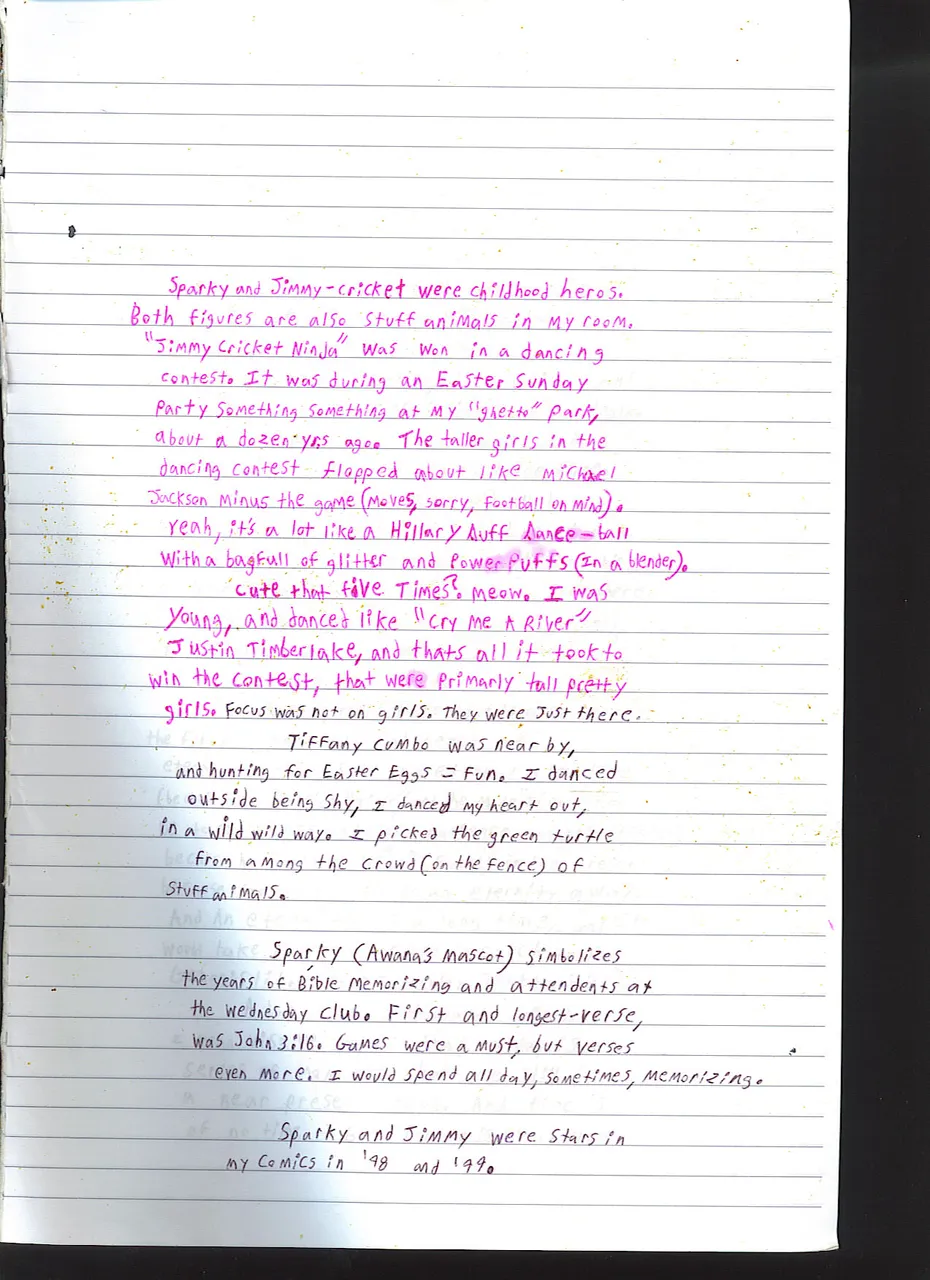 Sparky and Jimmy-cricket were childhood heros.
Both figures are also stuff animals in my room.
"Jimmy Cricket Ninja" was won in a dancing
contest. It was during an Easter Sunday
Party something something at my "ghetto" park,
about a dozen yrs ago. The taller girls in the
dancing contest flopped about like Michael
Jackson minus the game (moves, sorry, football on mind).
Yeah, it's a lot like a Hillary Duff Dance-ball
with a bagfull of glitter and Power Puffs (In a blender).
Cute that five Times? Meow. I was
young, and danced like "Cry Me A River"
Justin Timberlake, and thats all it took to
win the contest, that were primarly tall pretty
girls. Focus was not on girls. They were just there.
Tiffany Cumbo was near by,
and hunting for Easter Eggs = Fun. I danced
outside being shy, I danced my heart out,
in a wild wild way. I picked the green turtle
from among the crowd (on the fence) of
stuff animals.
Sparky (Awana's mascot) simbolizes
the years of Bible memorizing and attendents at
the wednesday club. First and longest-verse,
was John 3:16. Games were a must, but verses
even more. I would spend all day, sometimes, memorizing.
Sparky and Jimmy were stars in
my comics in '98 and '99.